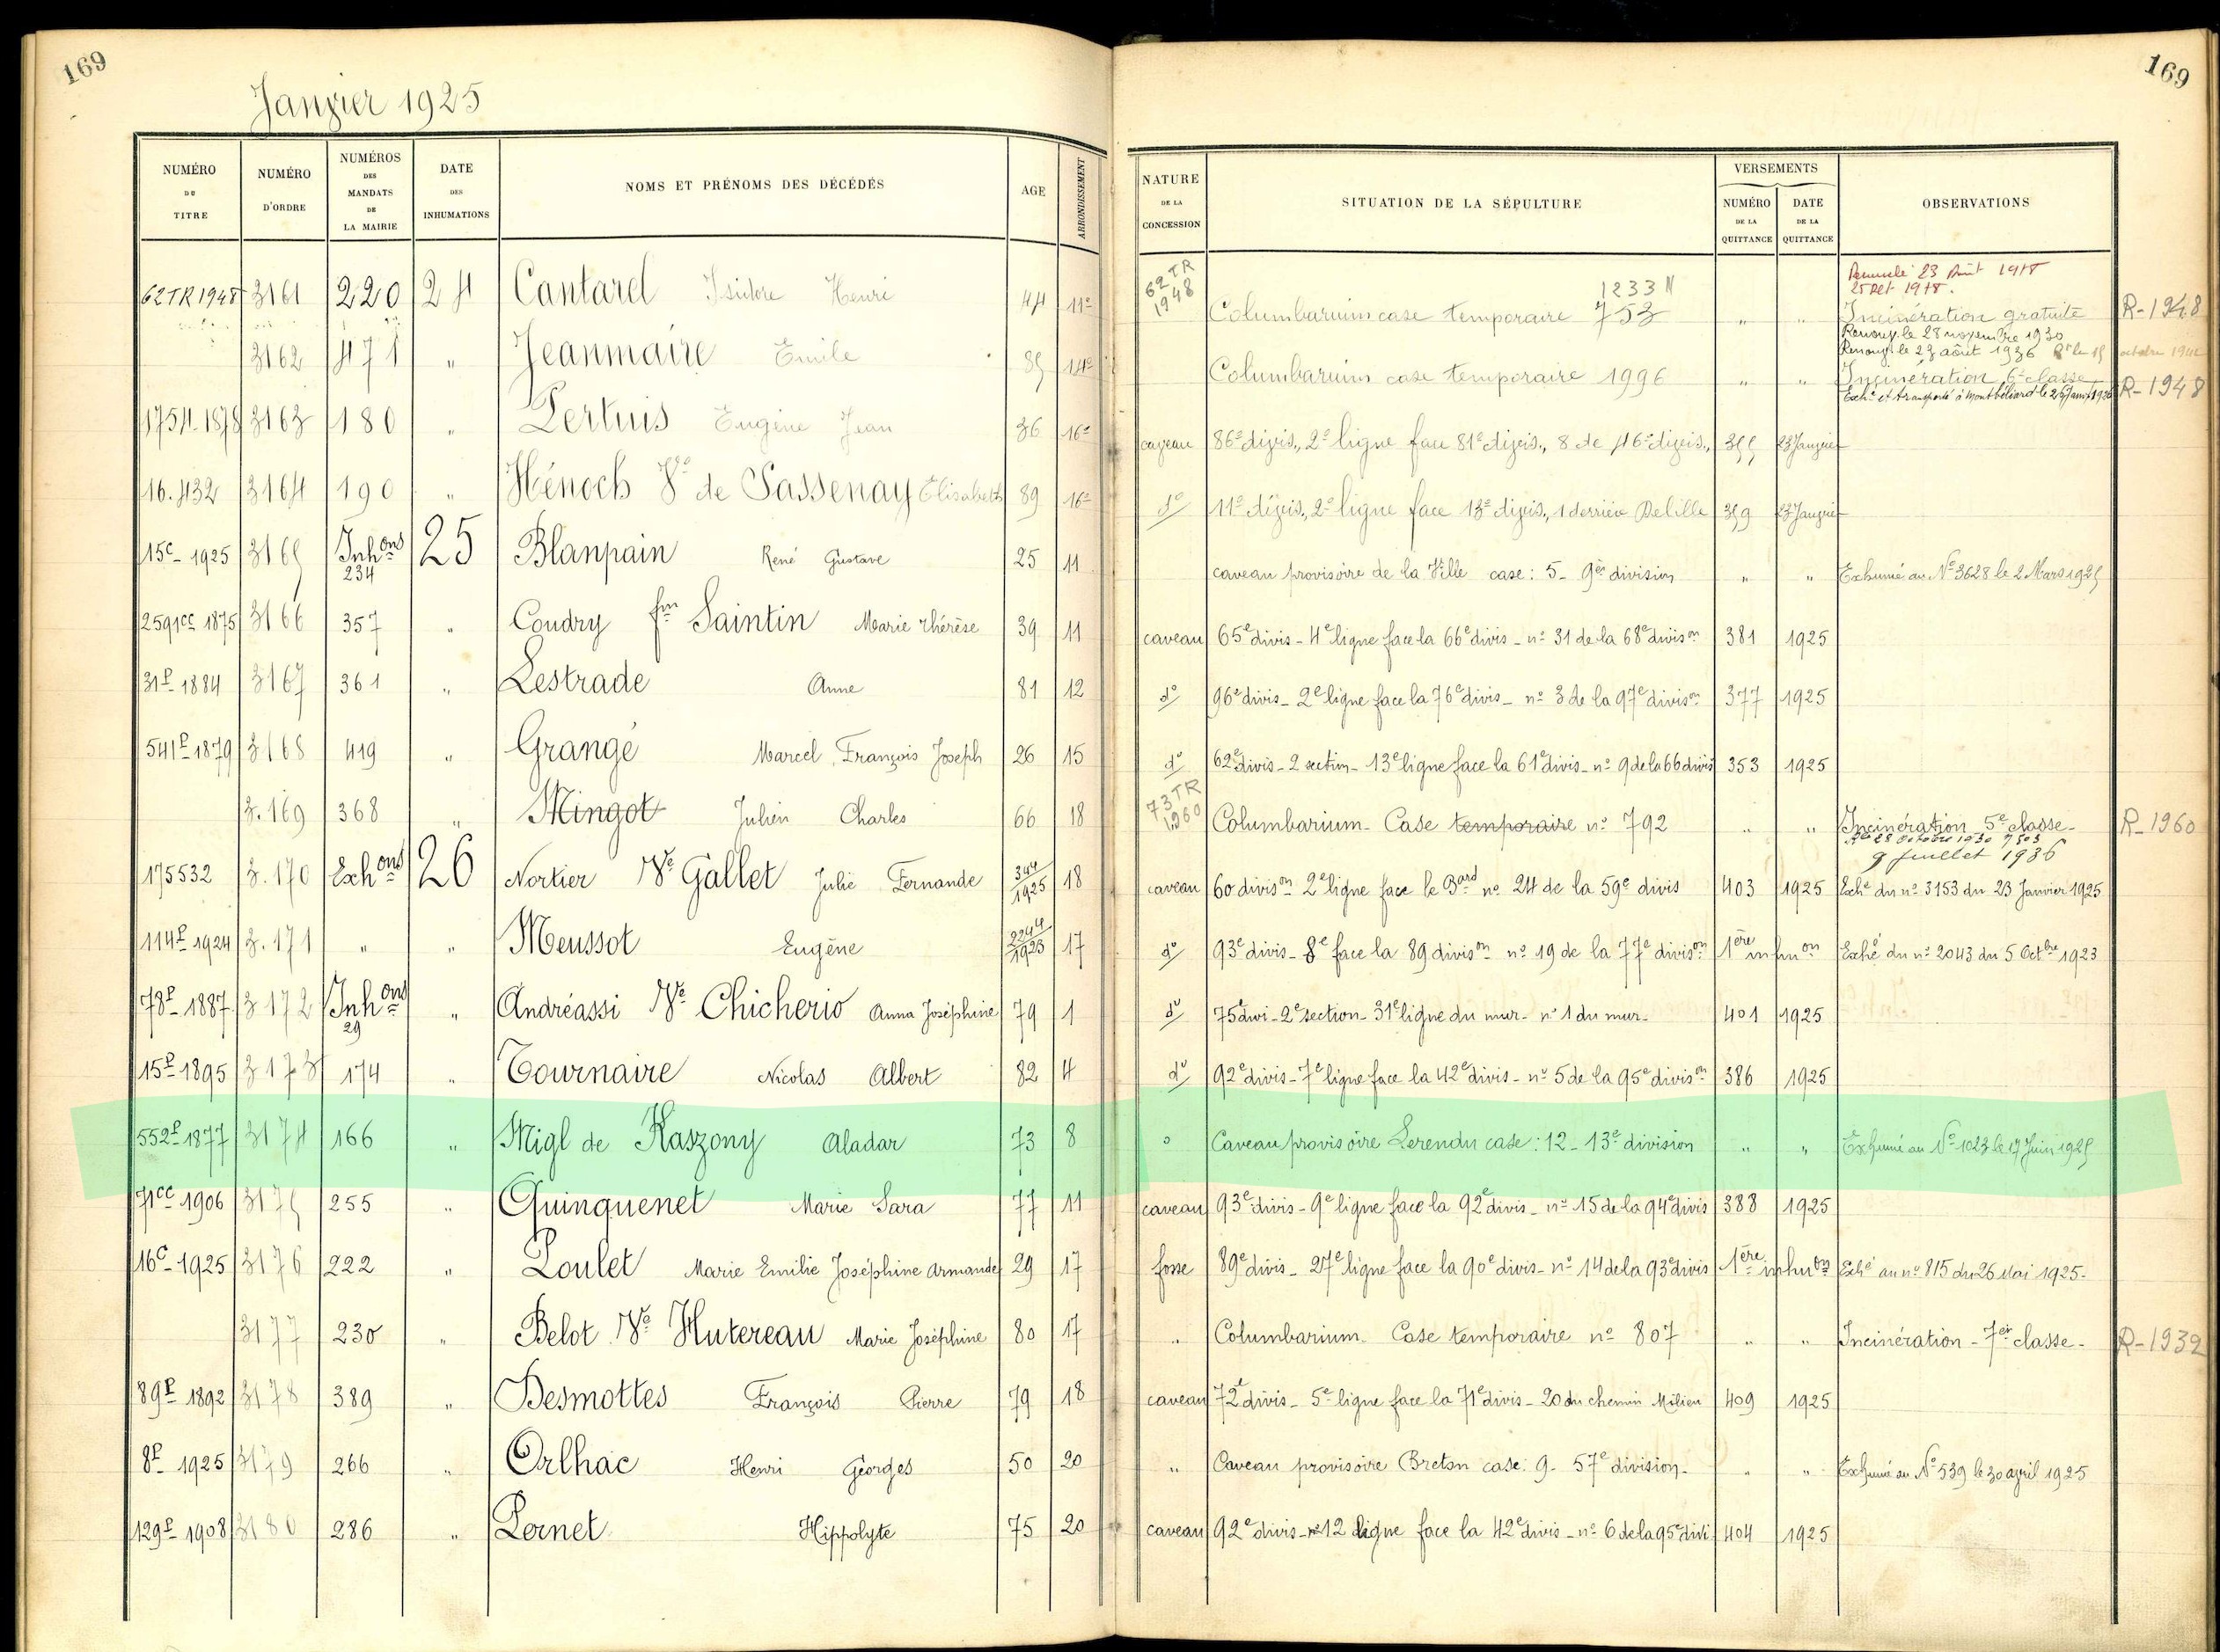 169
169
Janvier 1925
NUMÉRO DU TITRE
NUMÉRO D'ORDRE
NUMÉROS DES MANDATS DE LA MAIRIE
DATE DES INHUMATIONS
NOMS ET PRÉNOMS DES DÉCÉDÉS
AGE
ARRONDISSEMENT
NATURE DE LA CONCESSION
SITUATION DE LA SÉPULTURE
VERSEMENTS
NUMÉRO DE LA QUITTANCE
DATE DE LA QUITTANCE
OBSERVATIONS
23 Août 1918
1233 11
62TR1948 3161 220 24 Cantarel Isidore Henri 44 11e 62 TR 1948 Columbarium case temporaire 753 " " Incinération gratuite R-1948
Renouv. le 28 novembre 1930
Renouv. le 23 août 1936 octobre 1941
3162 471 " Jeanmaire Emile 85 14e Columbarium case temporaire 1996 " " Incinération 6e classe R-1948
Exhé et transporté à Montbéliard le
1754-1878 3163 180 " Pertuis Eugène Jean 36 16e caveau 86e divis., 2e ligne face 81e divis., 8 de 46e divis., 355 23 Janvier
16.432 3164 190 " Hénoch Ve de Sassenay Elisabeth 89 16e do 11e divis., 2e ligne face 13e divis., 1 derrière Delille 359 23 Janvier
15c-1925 3165 Inhons 234 25 Blanpain René Gustave 25 11 caveau provisoire de la Ville case: 5- 9e division " " Exhumé au No 3628 le 2 Mars 1925
2591cc 1875 3166 357 " Coudry fm Saintin Marie Thérèse 39 11 caveau 65e divis- 4e ligne face la 66e divis- no 31 de la 68e divison 381 1925
31P 1884 3167 361 " Lestrade Anne 81 12 do 96e divis- 2e ligne face la 76e divis- no 3 de la 97e divison 377 1925
541P 1879 3168 419 " Grangé Marcel François Joseph 26 15 do 62e divis- 2 section- 13e ligne face la 61e divis- no 9 de la 66 divis 353 1925
3.169 368 " Mingot Julien Charles 66 18 73TR 1960 Columbarium- Case temporaire no 792 " " Incinération 5e classe- R-1960
28 octobre 1930
9 juillet 1936
175532 3.170 Exhons 26 Nortier Ve Gallet Julie Fernande 344 1925 18 caveau 60 divison 2e ligne face le Bard no 24 de la 59e divis 403 1925 Exhé du no 3153 du 23 Janvier 1925
114P 1924 3.171 " " Meussot Eugène 2244 1923 17 do 93e divis- 8e face la 89 divison no 19 de la 77e divison 1ère inhuon Exhé du no 2043 du 5 Octbre 1923
78P 1887 3172 Inhons 29 " Andréassi Ve Chicherio Anna Joséphine 79 1 do 75e divi- 2e section- 31e ligne du mur- no 1 du mur- 401 1925
15P 1895 3173 174 " Tournaire Nicolas Albert 82 4 do 92e divis- 7e ligne face la 42e divis- no 5 de la 95e divison 386 1925
552P 1877 3174 166 " Migl de Kaszony Aladar 73 8 " Caveau provisoire Lerendu case: 12- 13e division " " Exhumé au No 1023 le 17 Juin 1925
71cc 1906 3175 255 " Quinquenet Marie Sara 77 11 caveau 93e divis- 9e ligne face la 92e divis- no 15 de la 94e divis 388 1925
16c-1925 3176 222 " Loulet Marie Emilie Joséphine Armande 29 17 fosse 89e divis- 27e ligne face la 90e divis- no 14 de la 93e divis 1ère inhuon Exhé au no 815 du 26 Mai 1925-
3177 230 " Belot Ve Hutereau Marie Joséphine 80 17 " Columbarium Case temporaire no 807 " " Incinération- 7e classe- R-1932
89P 1892 3178 389 " Desmottes François Pierre 79 18 caveau 72e divis- 5e ligne face la 71e divis- 20 du chemin Milieu 409 1925
8P 1925 3179 266 " Orlhac Henri Georges 50 20 " Caveau provisoire Breton case: 9- 57e division- " " Exhumé au No 539 le 30 avril 1925
129P 1908 3180 286 " Pernet Hippolyte 75 20 caveau 92e divis- no 12 ligne face la 42e divis- no 6 de la 95e divi 404 1925